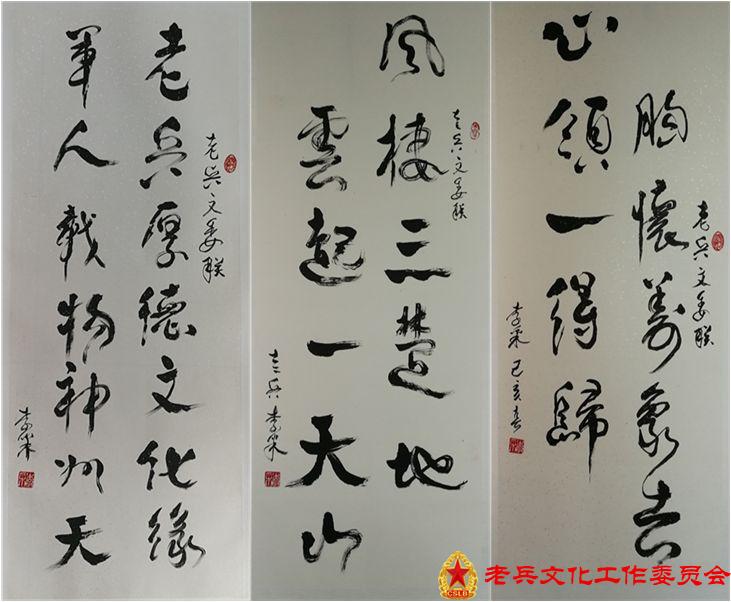 老兵文委联
老兵厚德文化缘
軍人載物神州天
李采
老兵文委联
风棲三楚地
雲起一天山
老兵李采
老兵文委联
胸懷萬象去
心領一得歸
李采己亥春
CSLB
老兵文化工作委员会